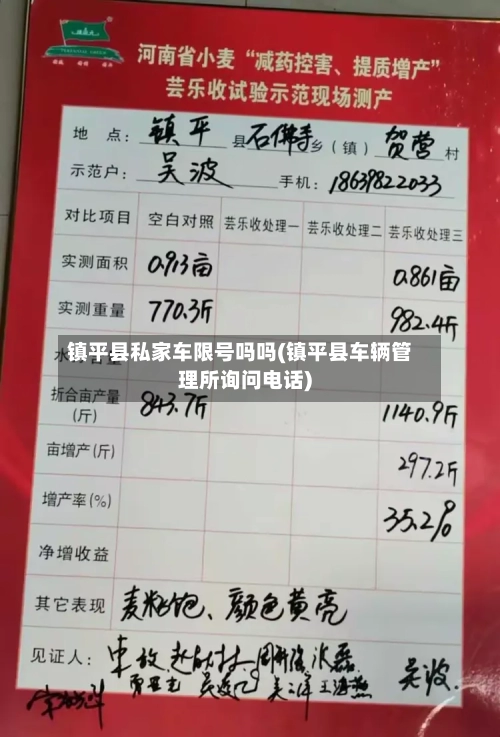 河南省小麦“减药控害、提质增产”
芸乐收试验示范现场测产
地 点：镇平县石佛寺乡（镇）贺营村
示范户：吴波 手机：18639822033
对比项目 空白对照 芸乐收处理一 芸乐收处理二 芸乐收处理三
实测面积 0.913亩 0.861亩
实测重量 770.3斤 982.4斤
镇平县私家车限号吗吗(镇平县车辆管
理所询问电话)
折合亩产量 843.7斤 1140.9斤
(斤)
亩增产(斤) 297.2斤
增产率(%) 35.2%
净增收益
其它表现 麦粒饱、颜色黄亮
见证人： 吴波